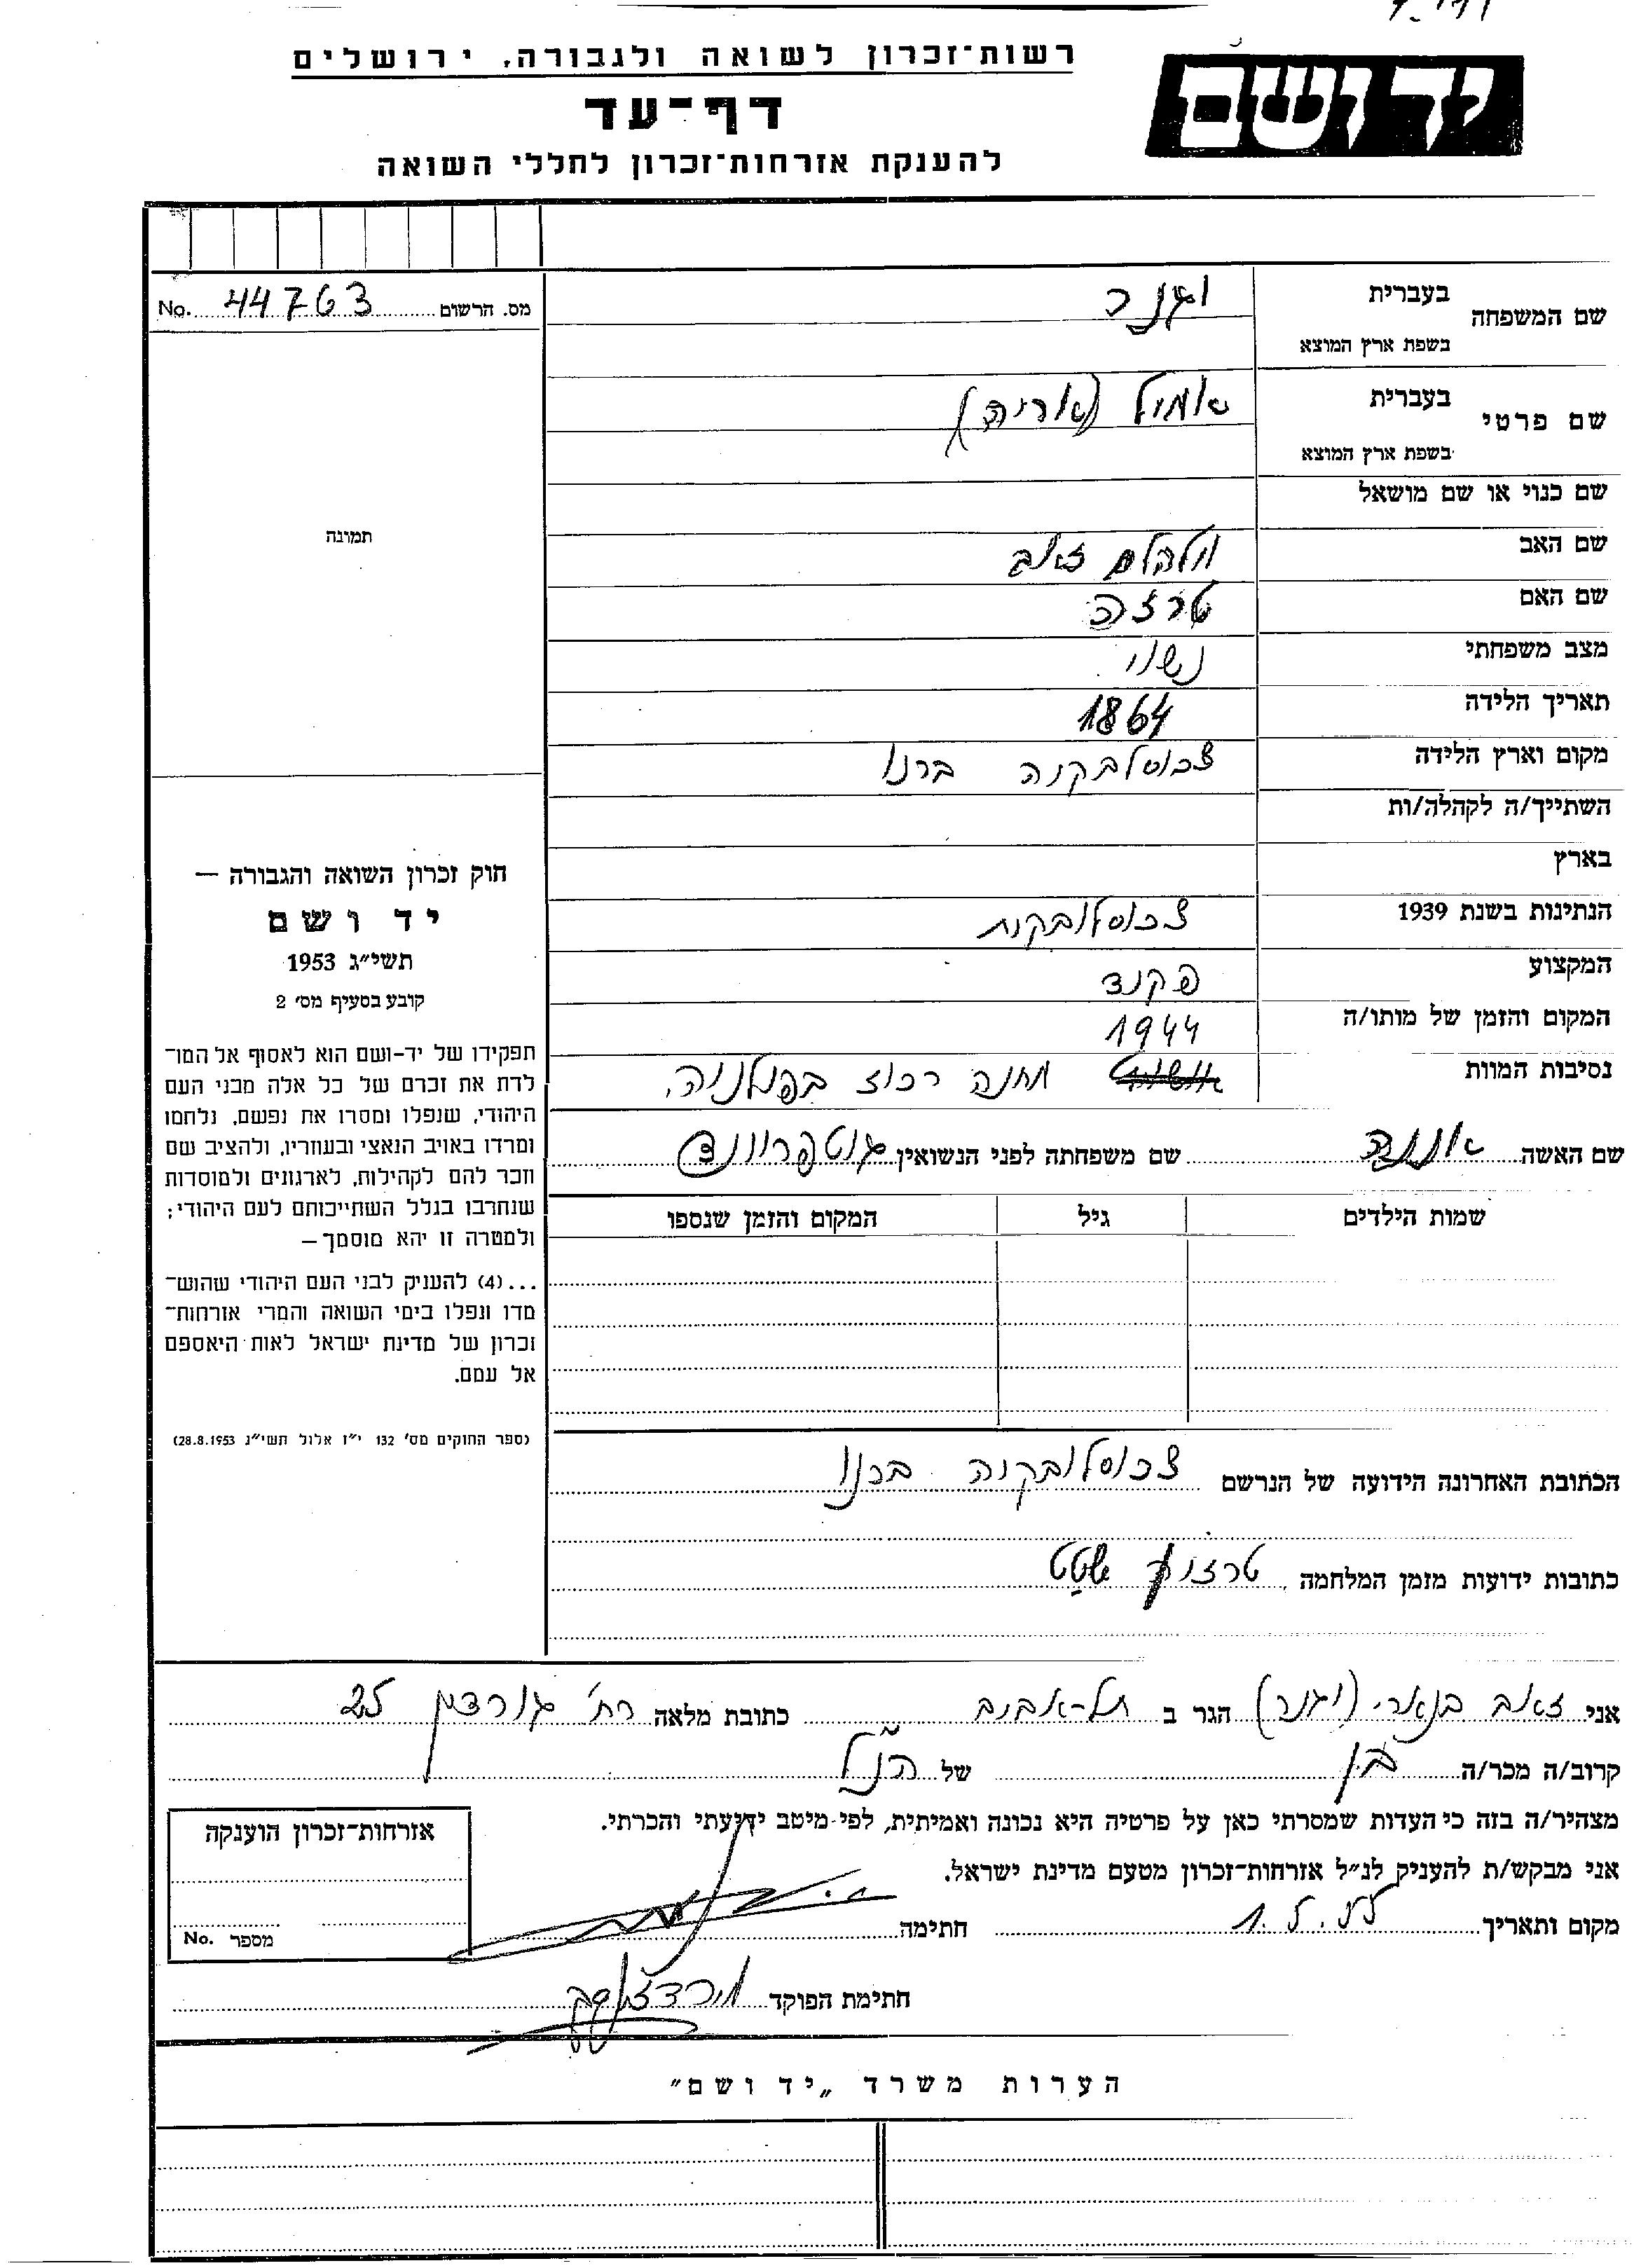 רשות־זכרון לשואה ולגבורה, ירושלים
יד ושם
דף־עד
להענקת אזרחות־זכרון לחללי השואה
מס. הרשום 44763 No.
שם המשפחה בעברית וגנר
בשפת ארץ המוצא
שם פרטי בעברית אמיל (אריה)
בשפת ארץ המוצא
שם כנוי או שם מושאל
שם האב וילהלם זאב
שם האם טרזה
מצב משפחתי נשוי
תאריך הלידה 1864
מקום וארץ הלידה צכוסלבקיה ברנו
השתייך/ה לקהלה/ות
בארץ
הנתינות בשנת 1939 צכוסלובקית
המקצוע פקיד
המקום והזמן של מותו/ה 1944
נסיבות המוות מחנה רכוז בפולניה.
שם האשה אננה שם משפחתה לפני הנשואין גוטפרוינד
שמות הילדים גיל המקום והזמן שנספו
הכתובת האחרונה הידועה של הנרשם צכוסלובקיה ברנו
כתובות ידועות מזמן המלחמה טרזין שטט
תמונה
חוק זכרון השואה והגבורה —
יד ושם
תשי״ג 1953
קובע בסעיף מס׳ 2
תפקידו של יד־ושם הוא לאסוף אל המו־
לדת את זכרם של כל אלה מבני העם
היהודי, שנפלו ומסרו את נפשם, נלחמו
ומרדו באויב הנאצי ובעוזריו, ולהציב שם
וזכר להם לקהילות, לארגונים ולמוסדות
שנחרבו בגלל השתייכותם לעם היהודי;
ולמטרה זו יהא מוסמך —
...(4) להעניק לבני העם היהודי שהוש־
מדו ונפלו בימי השואה והמרי אזרחות־
זכרון של מדינת ישראל לאות היאספם
אל עמם.
(ספר החוקים מס׳ 132 י״ז אלול תשי״ג 28.8.1953)
אני זאב בן־ארי (וגנר) הגר ב תל־אביב כתובת מלאה רח׳ גורדון 25
קרוב/ה מכר/ה בן של הנ״ל
מצהיר/ה בזה כי העדות שמסרתי כאן על פרטיה היא נכונה ואמיתית, לפי מיטב ידיעתי והכרתי.
אני מבקש/ת להעניק לנ״ל אזרחות־זכרון מטעם מדינת ישראל.
מקום ותאריך 1.5.55 חתימה
חתימת הפוקד
אזרחות־זכרון הוענקה
מספר No.
הערות משרד „יד ושם״